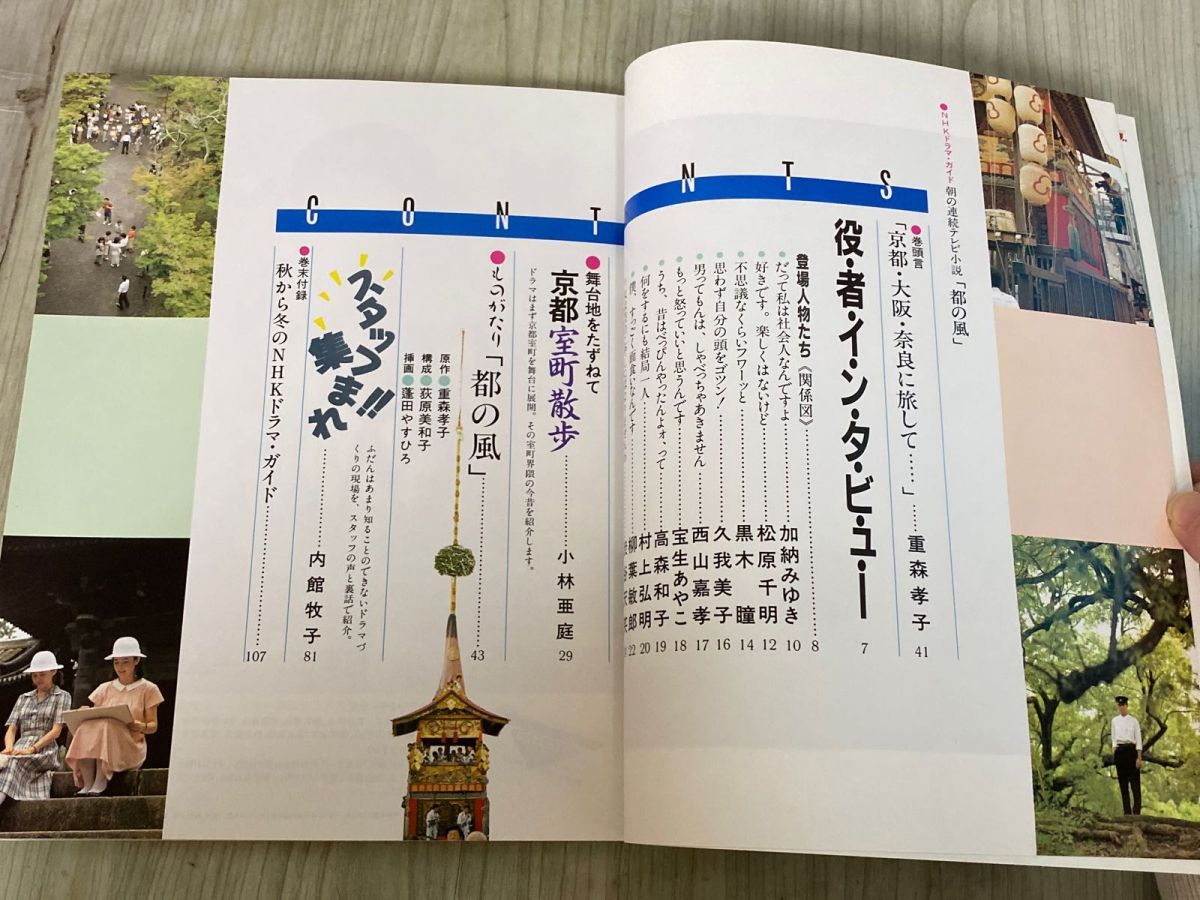 CONTENTS
●NHKドラマ・ガイド 朝の連続テレビ小説「都の風」
●巻頭言
「京都・大阪・奈良に旅して……」………重森孝子 41
役・者・イ・ン・タ・ビ・ュ・ー 7
登場人物たち《関係図》………8
●だって私は社会人なんですよ………加納みゆき 10
●好きです。楽しくはないけど………松原千明 12
●不思議なくらいフワーッと………黒木 瞳 14
●思わず自分の頭をゴツン!………久我美子 16
●男ってもんは、しゃべっちゃあきません………西山嘉孝 17
●もっと怒っていいと思うんです………宝生あやこ 18
●うち、昔はべっぴんやったんよォ、って………高森和子 19
●何をするにも結局一人………村上弘明 20
●僕、すっごく面食いなんです………柳葉敏郎 22
●舞台地をたずねて
京都室町散歩………小林亜庭 29
ドラマはまず京都室町を舞台に展開。その室町界隈の今昔を紹介します。
●ものがたり「都の風」………43
原作●重森孝子
構成●荻原美和子
挿画●蓬田やすひろ
スタッフ集まれ!!………内館牧子 81
ふだんはあまり知ることのできないドラマづ
くりの現場を、スタッフの声と裏話で紹介。
●巻末付録
秋から冬のNHKドラマ・ガイド………107